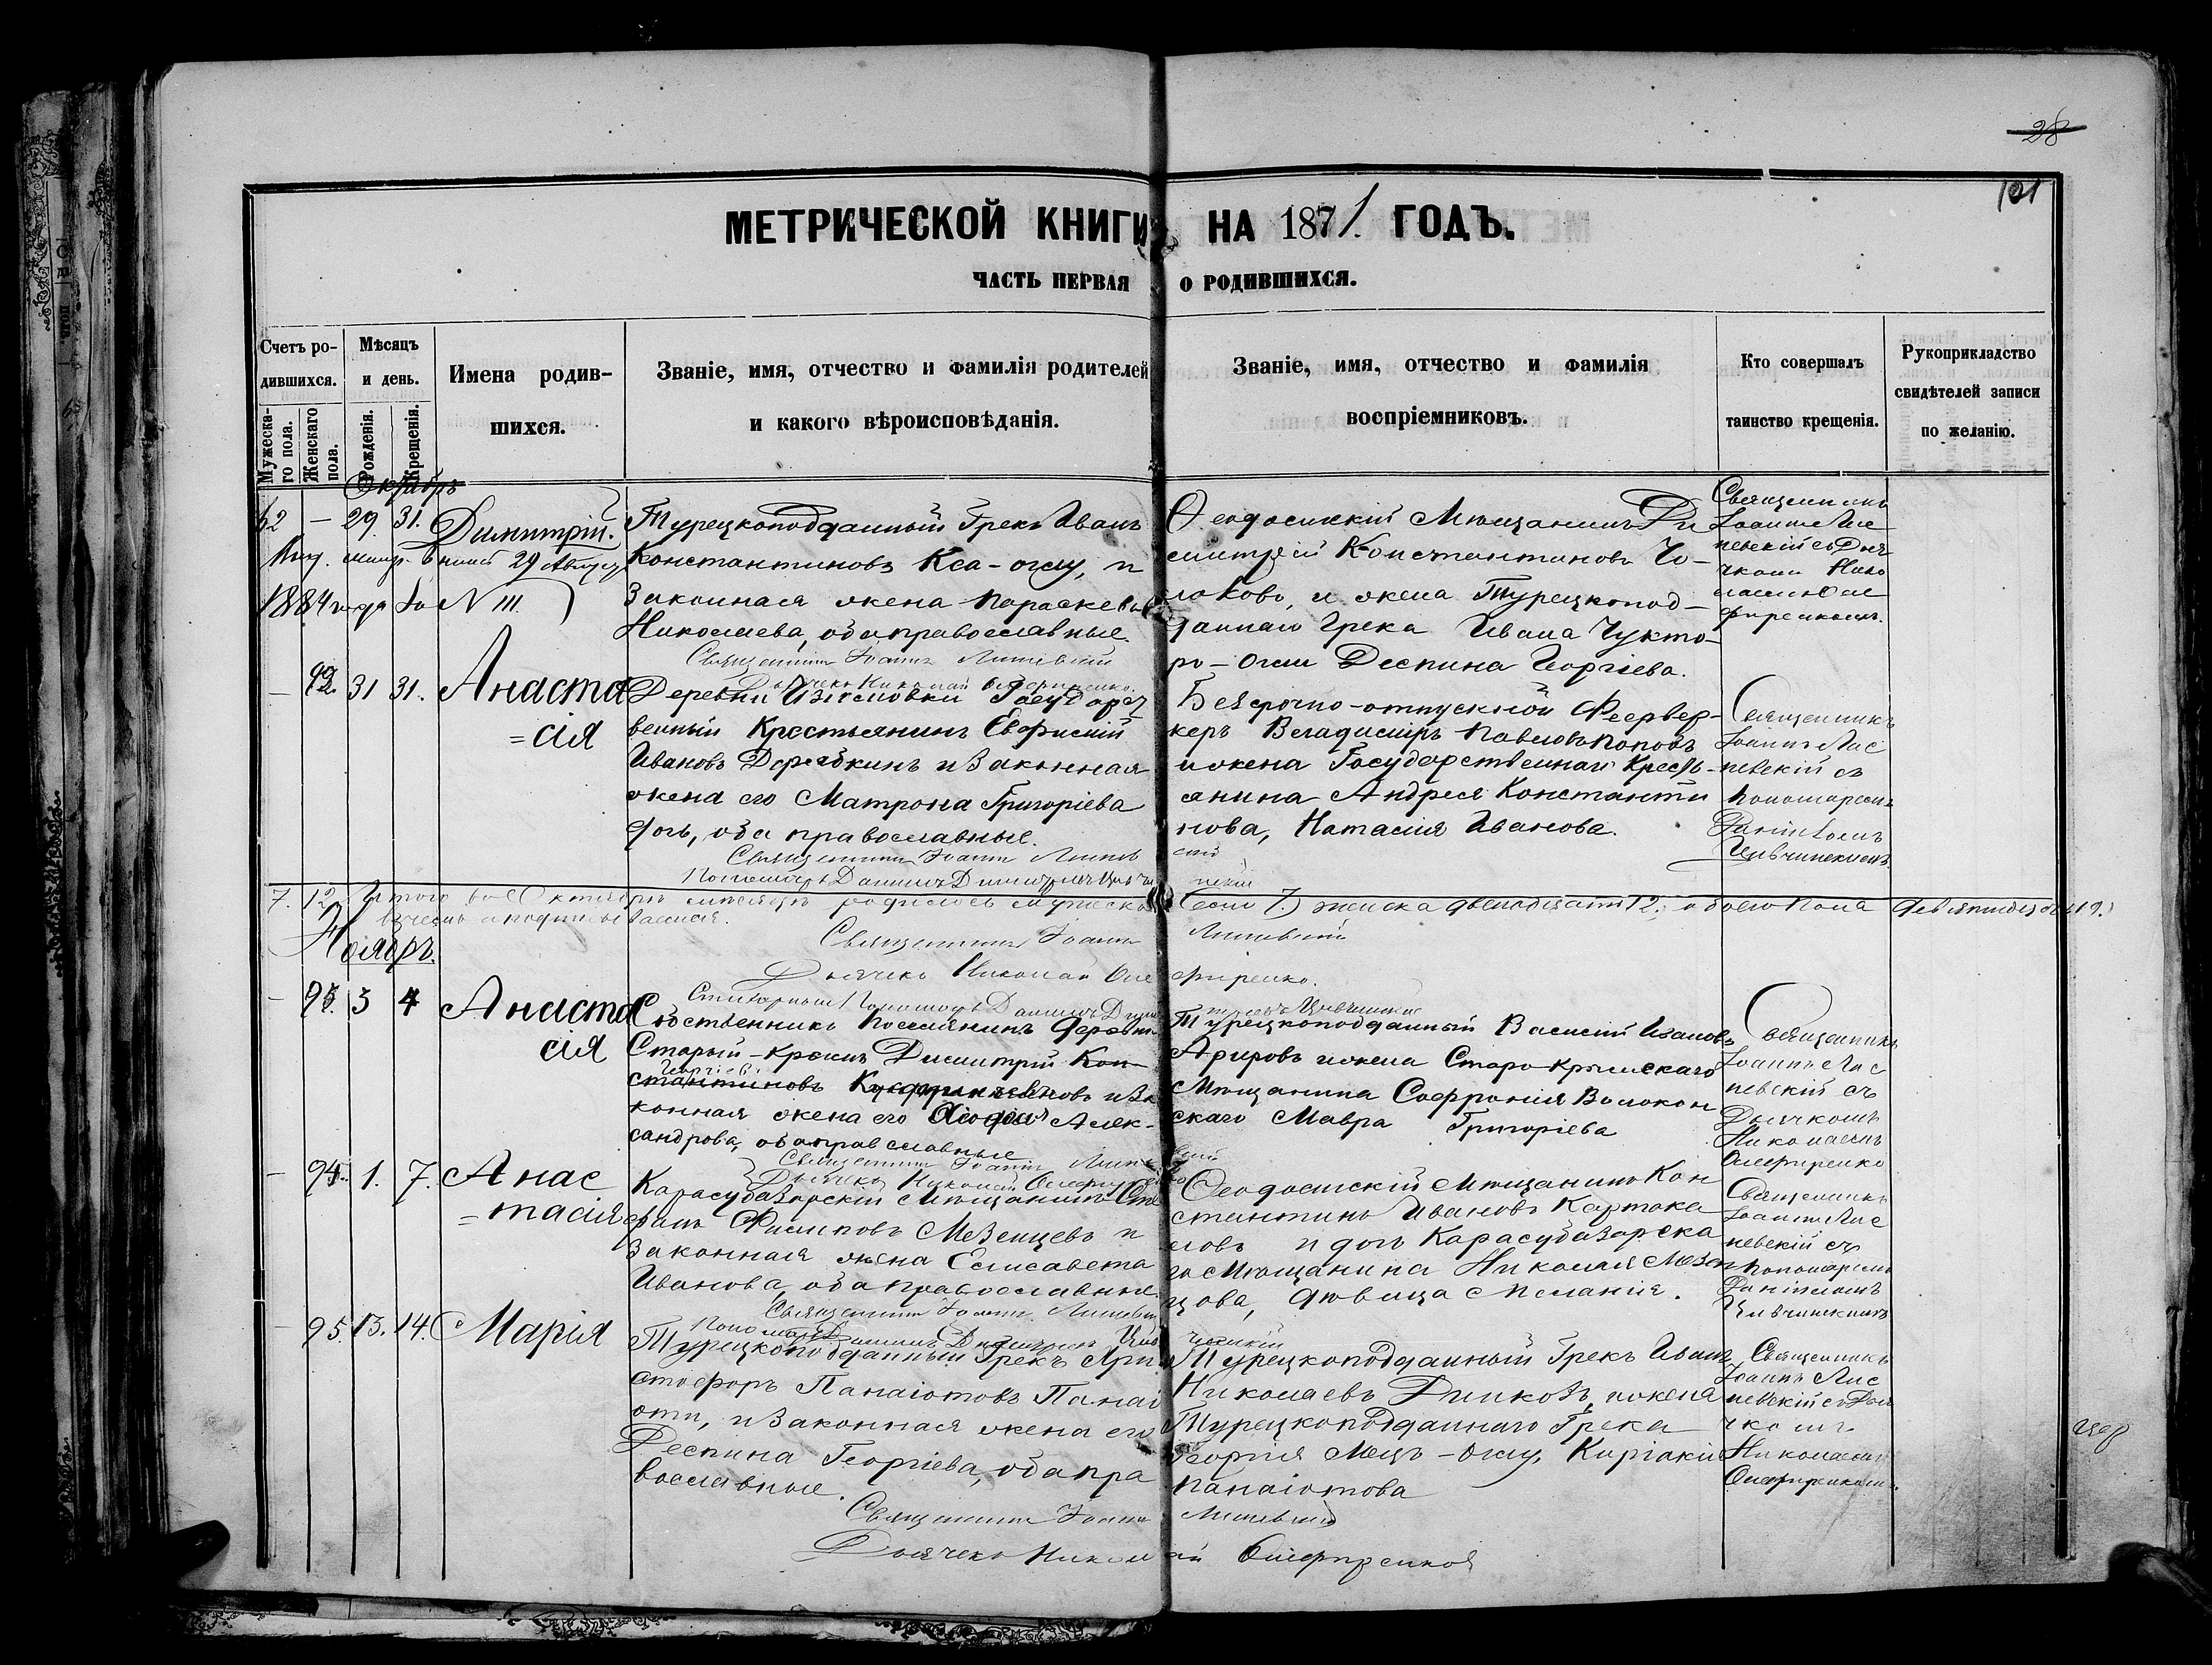 28
101
МЕТРИЧЕСКОЙ КНИГИ НА 1871. ГОДЪ.
ЧАСТЬ ПЕРВАЯ О РОДИВШИХСЯ.
Счетъ ро-
дившихся.
Мужеска-
го пола.
Женскаго
пола.
Мѣсяцъ
и день.
Рожденія.
Крещенія.
Имена родив-
шихся.
Званіе, имя, отчество и фамилія родителей
и какого вѣроисповѣданія.
Званіе, имя, отчество и фамилія
воспріемниковъ.
Кто совершалъ
таинство крещенія.
Рукоприкладство
свидѣтелей записи
по желанію.
Октябрь
62 — 29. 31. Димитрій.
29 Августа
1884 года за N III.
Турецкоподданный Грекъ Иванъ
Константиновъ Кеа-оглу, и
Законная жена Параскева
Николаева, оба православные.
Священникъ Іоаннъ
Дьячекъ Николай
Ѳеодосійскій Мѣщанинъ Ди
митрій Константиновъ Чо-
лаковъ, и жена Турецкопод-
даннаго Грека Ивана Чукто-
ро-Оглы Деспина Георгіева.
Священникъ
Іоаннъ Лис
невскій съ Дья
чкомъ Нико
лаемъ Оле
фиренкомъ.
— 92. 31 31. Анаста
=сія
Деревни Изюмовки Государст
венный Крестьянинъ Евфимій
Ивановъ и Законная
жена его Матрона Григоріева
дочь, оба православные.
Священникъ Іоаннъ
Пономарь Даніилъ Димитріевъ
Безсрочно-отпускной Феервер-
керъ Владиміръ Павловъ Поповъ
и жена Государственнаго Кресть-
янина Андрея Константи
нова, Наталія Иванова.
Священникъ
Іоаннъ Лис
невскій съ
Пономаремъ
Даніиломъ
7. 12. Итого въ Октябрѣ мѣсяцѣ родилось мужеска
(семь 7.) женска двенадцать 12. обоего пола девятнадцать 19.)
въ чемъ и подписываемся.
Священникъ Іоаннъ Лисневскій
Дьячекъ Николай Олефиренко.
Ноябрь.
— 93. 3 4 Анаста
сія
Собственникъ Поселянинъ деревни
Старый-Крымъ Димитрій Кон-
Георгіевъ
стантиновъ и За
конная жена его Алек-
сандрова, оба православные
Священникъ Іоаннъ
Дьячекъ Николай
Турецкоподданный Василій Ивановъ
Арировъ и жена Старо-Крымскаго
Мѣщанина Софронія Волокон
скаго Мавра Григоріева
Священникъ
Іоаннъ Лис
невскій съ
Дьячкомъ
Николаемъ
Олефиренко
— 94. 1. 7. Анас
=тасія
Карасубазарскій Мѣщанинъ Сте
фанъ Филиповъ Мезенцевъ и
Законная жена Елисавета
Иванова, оба православные.
Священникъ Іоаннъ
Ѳеодосійскій Мѣщанинъ Кон
стантинъ Ивановъ Картака
ловъ и дочь Карасубазарска
го Мѣщанина Николая Мезен
цова, дѣвица Меланія.
Священникъ
Іоаннъ Лис
невскій съ
Пономаремъ
Даніиломъ
95. 13. 14. Марія
Турецкоподданный Грекъ Хри
стофоръ Панаіотовъ Панаі
оти, и Законная жена его
Деспина Георгіева, оба пра
вославные.
Турецкоподданный Грекъ Иванъ
Николаевъ Димковъ, и жена
Турецкоподданнаго Грека
Георгія Мецъ-Оглу, Киріаки
Панаіотова
Священникъ
Іоаннъ Лис
невскій съ Дья
чкомъ
Николаемъ
Олефиренкомъ.
Священникъ Іоаннъ Лисневскій
Дьячекъ Николай Олефиренко